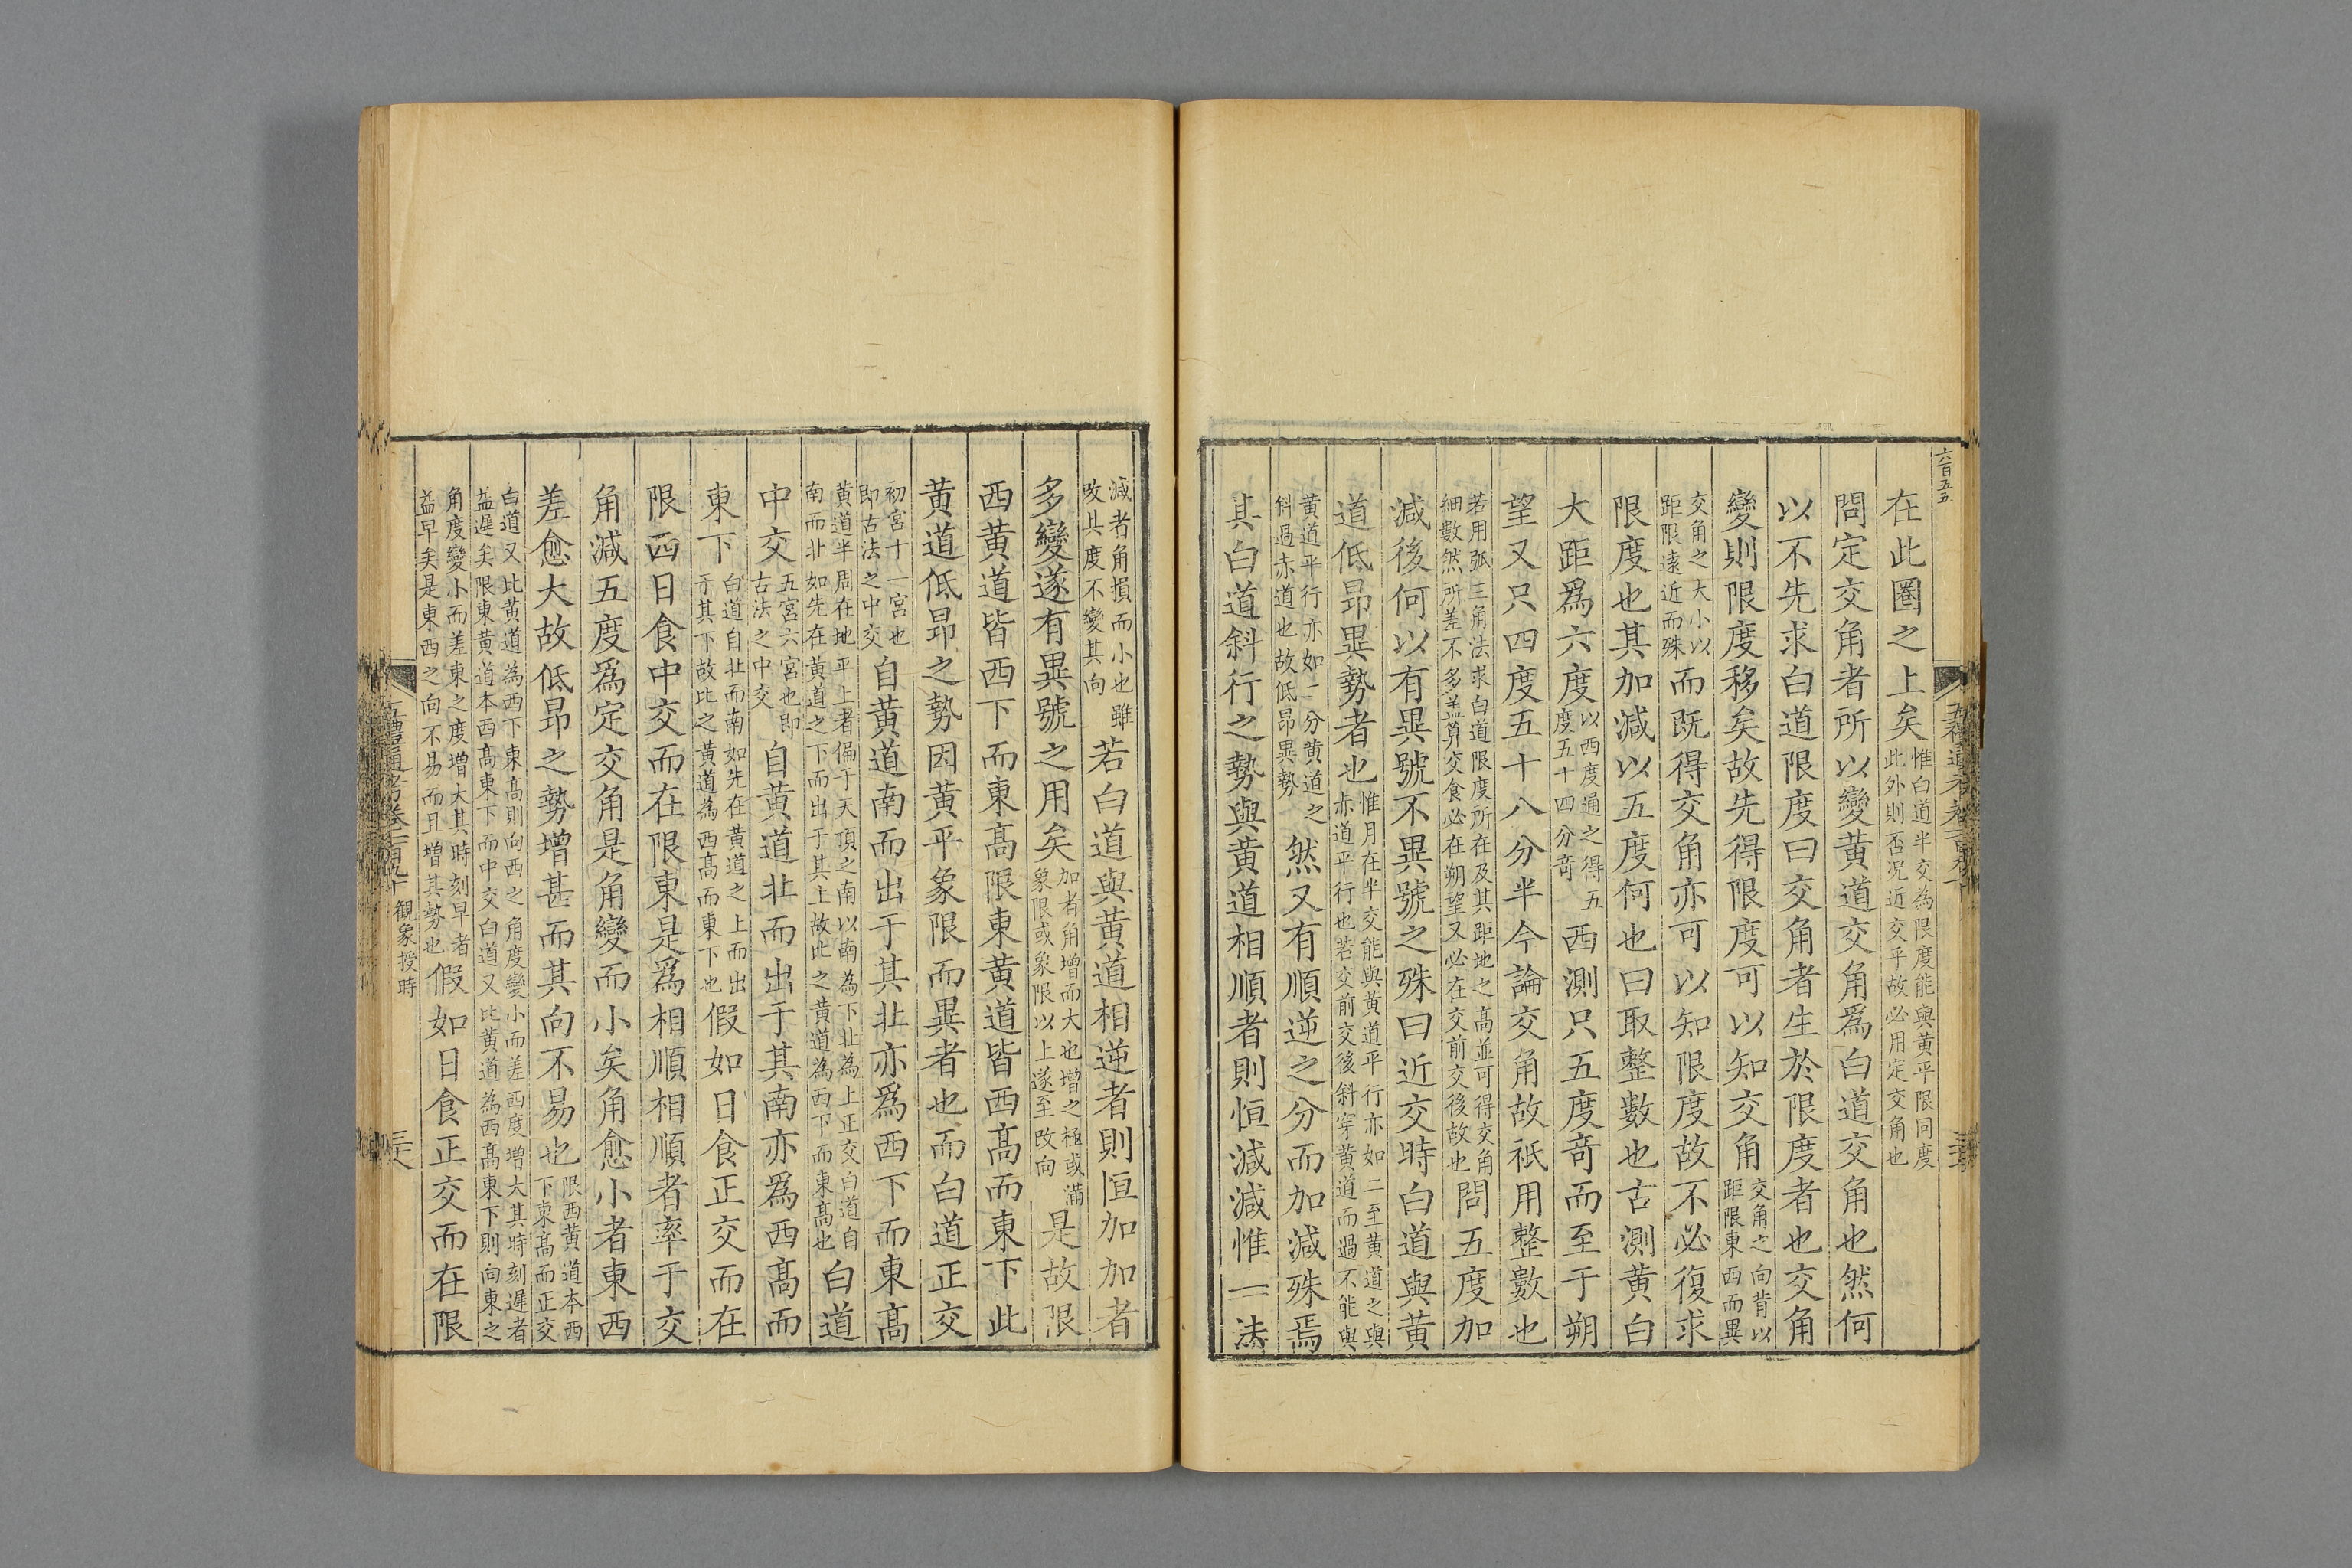 六百五五
在此圈之上矣惟白道半交為限度能與黃平限同度此外則否況近交乎故必用定交角也
問定交角者所以變黃道交角爲白道交角也然何
以不先求白道限度曰交角者生於限度者也交角
變則限度移矣故先得限度可以知交角交角之向背以距限東西而異
交角之大小以距限遠近而殊而既得交角亦可以知限度故不必復求
限度也其加減以五度何也曰取整數也古測黃白
大距爲六度以西度通之得五度五十四分竒西測只五度竒而至于朔
望又只四度五十八分半今論交角故祇用整數也
若用弧三角法求白道限度所在及其距地之高並可得交角細數然所差不多盖算交食必在朔望又必在交前交後故也問五度加
減後何以有異號不異號之殊曰近交時白道與黃
道低昻異勢者也惟月在半交能與黃道平行亦如二至黃道之與赤道平行也若交前交後斜穿黃道而過不能與
黃道平行亦如二分黃道之斜過赤道也故低昻異勢然又有順逆之分而加減殊焉
其白道斜行之勢與黃道相順者則恒減減惟一法
減者角損而小也雖改其度不變其向若白道與黃道相逆者則恒加加者
多變遂有異號之用矣加者角增而大也增之極或滿象限或象限以上遂至改向是故限
西黃道皆西下而東高限東黃道皆西高而東下此
黃道低昻之勢因黃平象限而異者也而白道正交
初宮十一宮也即古法之中交自黃道南而出于其北亦爲西下而東高
黃道半周在地平上者偏于天頂之南以南為下北為上正交白道自南而北如先在黃道之下而出于其上故比之黃道為西下而東高也白道
中交五宮六宮也即古法之中交自黃道北而出于其南亦爲西高而
東下白道自北而南如先在黃道之上而出于其下故比之黃道為西高而東下也假如日食正交而在
限西日食中交而在限東是爲相順相順者率于交
角減五度爲定交角是角變而小矣角愈小者東西
差愈大故低昻之勢增甚而其向不易也限西黃道本西下東高而正交
白道又比黃道為西下東高則向西之角度變小而差西度增大其時刻遲者益遲矣限東黃道本西高東下而中交白道又比黃道為西高東下則向東之
角度變小而差東之度增大其時刻早者益早矣是東西之向不易而且增其勢也假如日食正交而在限
五禮通考卷一百九十
觀象授時